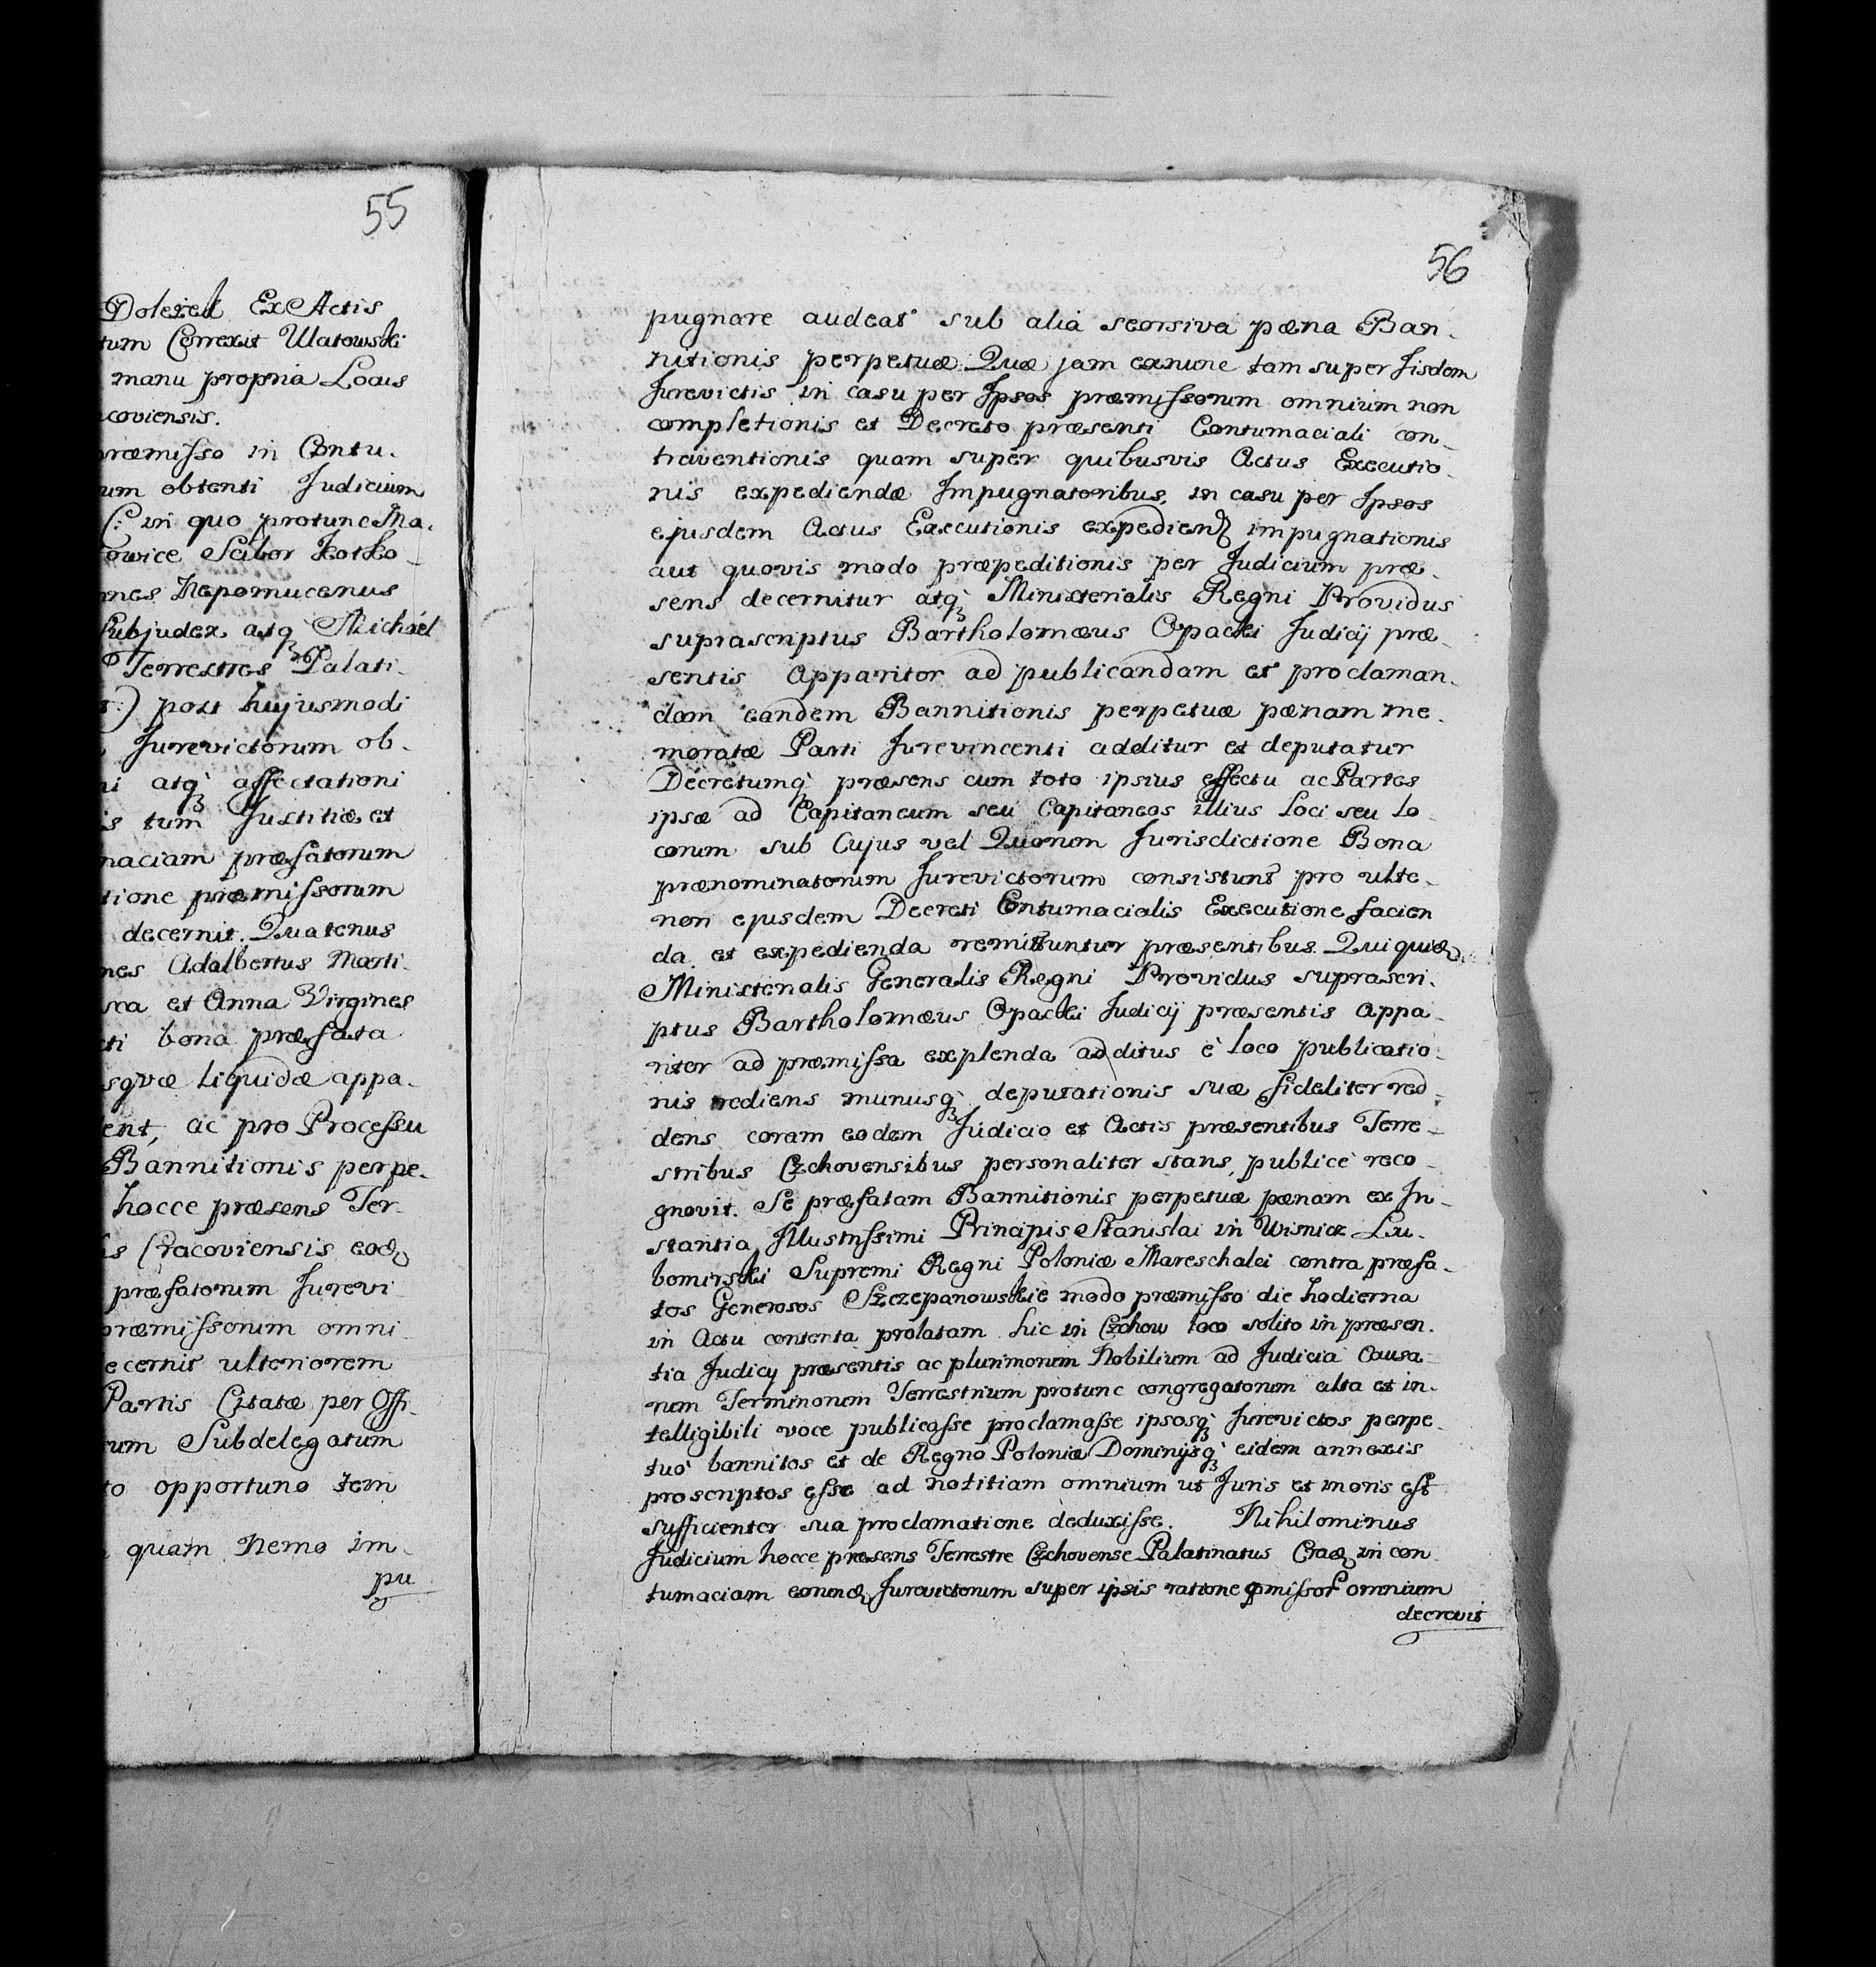 55
Doleżel Ex Actis
tum Correxit Ulatowski
manu propria Locus
coviensis.
præmisso in Contu-
um obtenti Judicium
(: in quo protunc Ma-
towice Scibor Kotko-
nnes Nepomucenus
Subjudex atq3 Michäel
Terrestres Palati-
t:) post hujusmodi
Jurevictorum ob-
ni atq3 affectationi
is tum Justitiæ et
maciam præfatorum
tione præmissorum
decernit. Quatenus
nes Adalbertus Marti-
sca et Anna Virgines
cti bona præfata
sqvæ liquidæ appa-
ent, ac pro Processu
Bannitionis perpe-
hocce præsens Ter-
is Cracoviensis eođ
præfatorum Jurevi-
præmissorum omni-
ecernit ulteriorem
Partis Citatæ per Offi-
tum Subdelegatum
to opportuno tem
quam Nemo im-
pu
56
pugnare audeat sub alia seorsiva pæna Ban-
nitionis perpetuæ. Quæ jam exnunc tam super Iisdem
Jurevictis in casu per Ipsos præmissorum omnium non
completionis et Decreto præsenti Contumaciali con-
traventionis quam super quibusvis Actus Executio-
nis expediendæ Impugnatoribus, in casu per Ipsos
ejusdem Actus Executionis expedienđ impugnationis
aut quovis modo præpeditionis per Judicium præ-
sens decernitur atq3 Ministerialis Regni Providus
suprascriptus Bartholomæus Opacki Judicij præ-
sentis Apparitor ad publicandam et proclaman-
dam eandem Bannitionis perpetuæ pænam me-
moratæ Parti Jurevincenti additur et deputatur
Decretumq3 præsens cum toto ipsius effectu ac Partes
ipsæ ad Capitaneum seu Capitaneos illius loci seu lo-
corum sub Cujus vel Quorum Jurisdictione Bona
prænominatorum Jurevictorum consistunt pro ulte-
riori ejusdem Decreti Contumacialis Executione facien
da et expedienda remittuntur præsentibus. Qui quiđ
Ministerialis Generalis Regni Providus suprascri-
ptus Bartholomæus Opacki Judicij præsentis Appa-
ritor ad præmissa explenda additus è loco publicatio-
nis rediens munusq3 deputationis suæ fideliter red-
dens coram eodem Judicio et Actis præsentibus Terre-
stribus Czchovensibus personaliter stans, publicè reco-
gnovit. Se præfatam Bannitionis perpetuæ pænam ex In-
stantia Illustrissimi Principis Stanislai in Wisnicz Lu-
bomirski Supremi Regni Poloniæ Mareschalci contra præfa-
tos Generosos Szczepanowskie modo præmisso die hodierna
in Actu contenta prolatam hic in Czchow loco solito in præsen-
tia Judicij præsentis ac plurimorum Nobilium ad Judicia Causa-
rum Terminorum Terrestrium protunc congregatorum alta et in-
telligibili voce publicasse proclamasse ipsosq3 Jurevictos perpe-
tuò bannitos et de Regno Poloniæ Dominijsq3 eidem annexis
proscriptos esse ad notitiam omnium ut Juris et moris est
sufficienter sua proclamatione deduxisse. Nihilominus
Judicium hocce præsens Terrestre Czchovense Palatinatus Cracđ in con
tumaciam eorunđ Jurevictorum super ipsis ratione pmissor omnium
decrevit